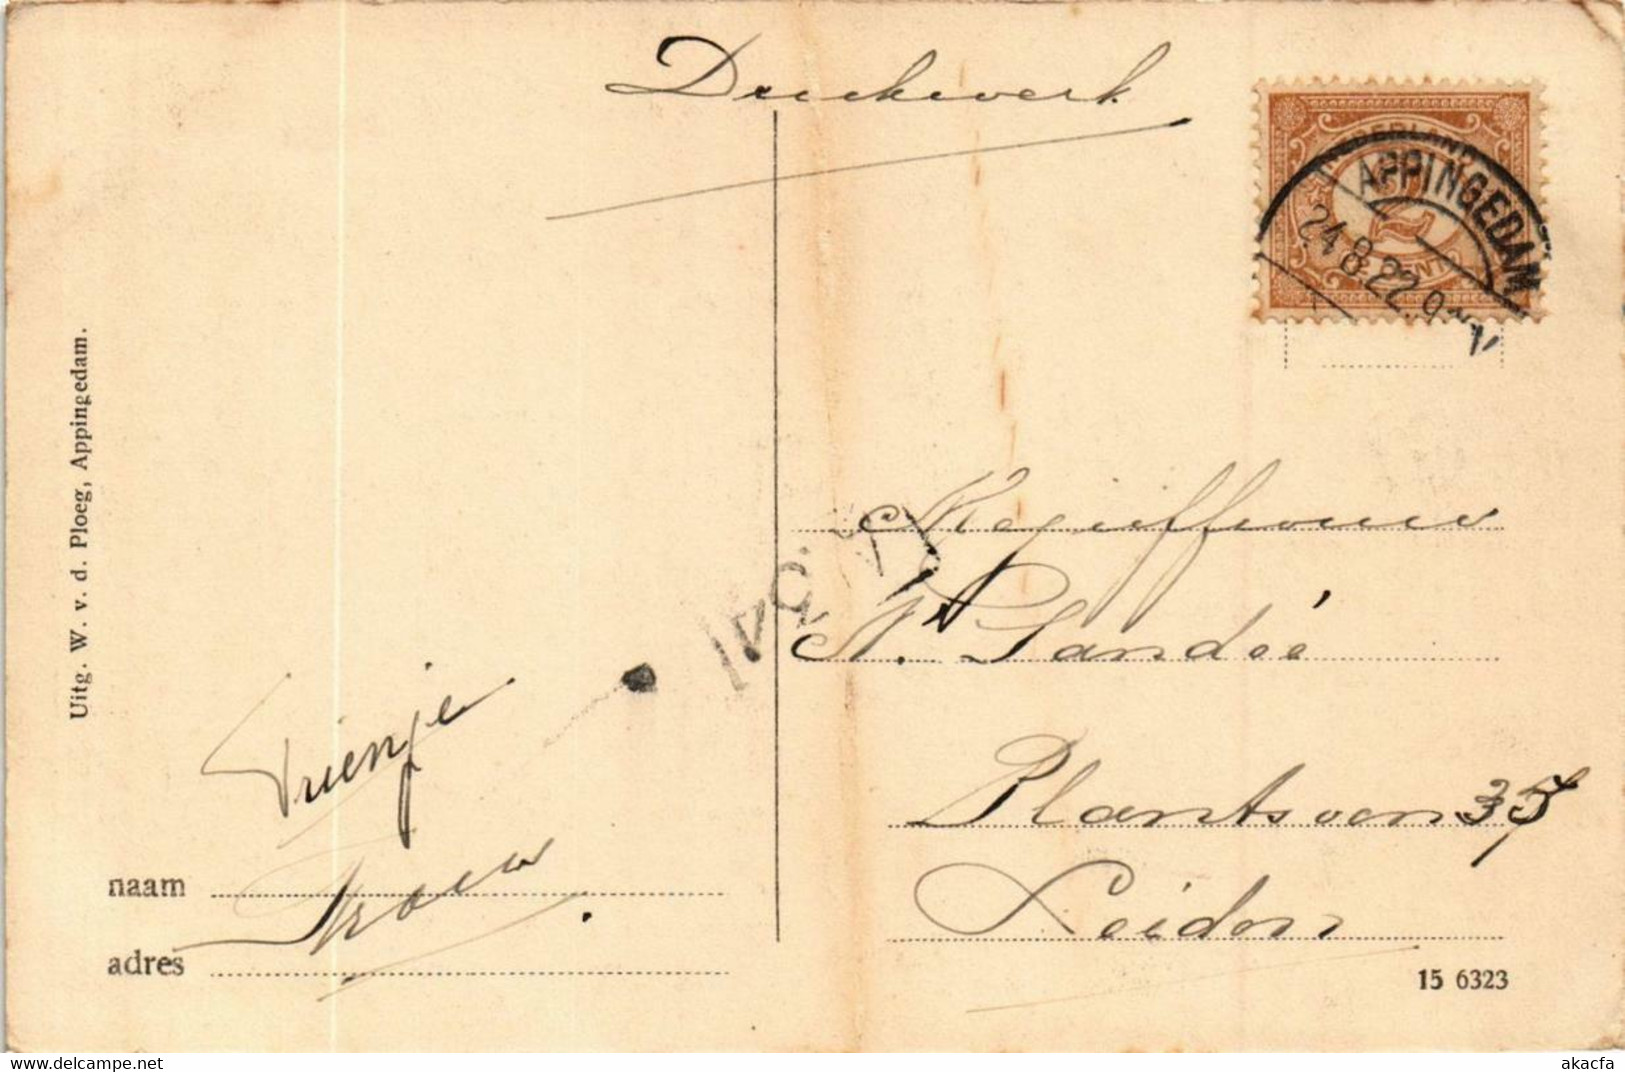 Drukwerk
NEDERLAND
2
CENT
APPINGEDAM
24.8.22.9
Uitg. W. v. d. Ploeg, Appingedam.
Mejuffrouw
Sandeé
Plantsoen 35
Leiden
Trienje
Trouw
naam
adres
15 6323
delcampe.net
akacfa